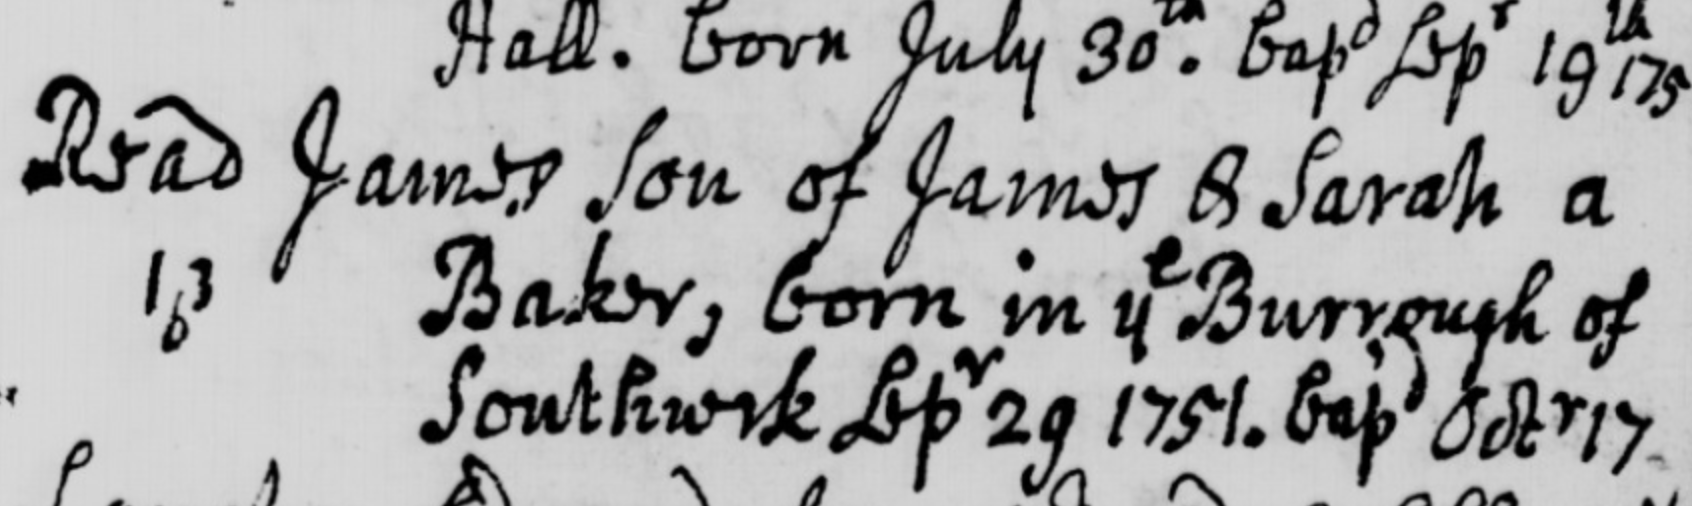 Hall. born July 30th. bapd Sepr 19th 175
Read James Son of James & Sarah a
13 Baker, born in ye Burrough of
6
Southwek Sepr 29 1751. bapd Octr 17